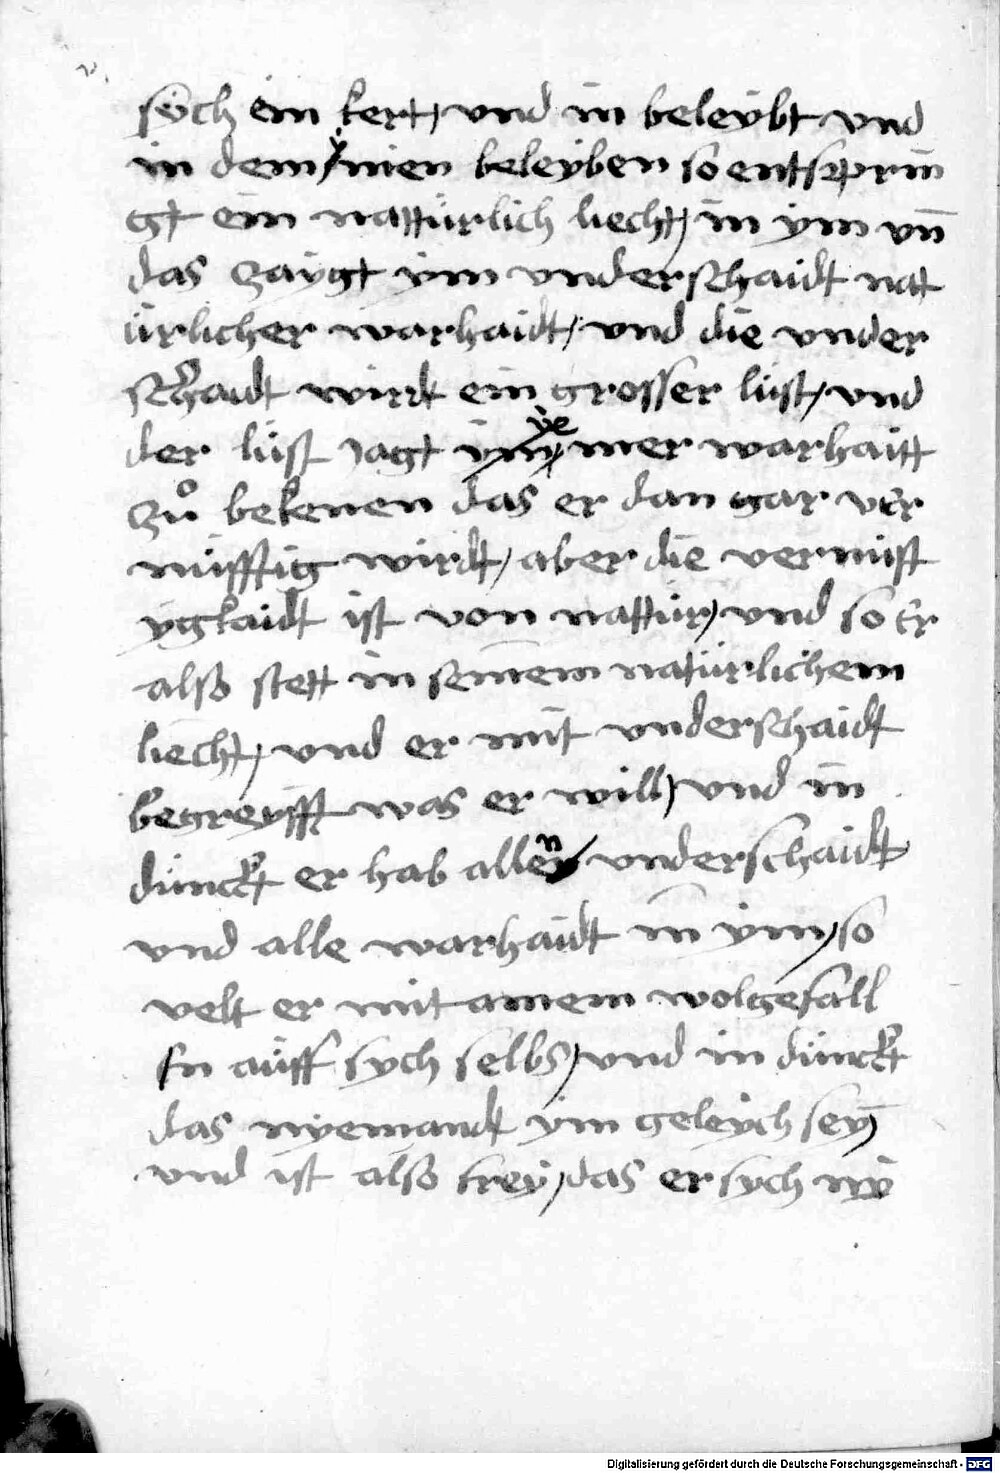 sÿch ein kert / vnd in beleÿbt vnd
in dem / inen beleÿben so entsprin
gt ein nattürlich liecht / in ÿm vn̄
das zaÿgt ÿm vnderschaidt nat
ürlicher warhaidt / vnd die vnder
schaidt wirdt ein grosser lüst / vnd
der lüst jagt ÿn ÿe mer warhaitt
zů bekenen das er dan gar ver
nüfftig wirdt / aber die vernüft
ÿgkaidt ist von nattür / vnd so er
also stett in seinem natürlichem
liecht / vnd er mit vnderschaidt
begreÿfft was er will / vnd in
dünckt er hab allen vnderschaidt
vnd alle warhaidt in ÿm / so
velt er mit ainem wolgefall
en aüff sych selbs / vnd in dünckt
das nyemandt ÿm geleÿch seÿ /
vnd ist also freÿ / das er sych nÿe
Digitalisierung gefördert durch die Deutsche Forschungsgemeinschaft - DFG